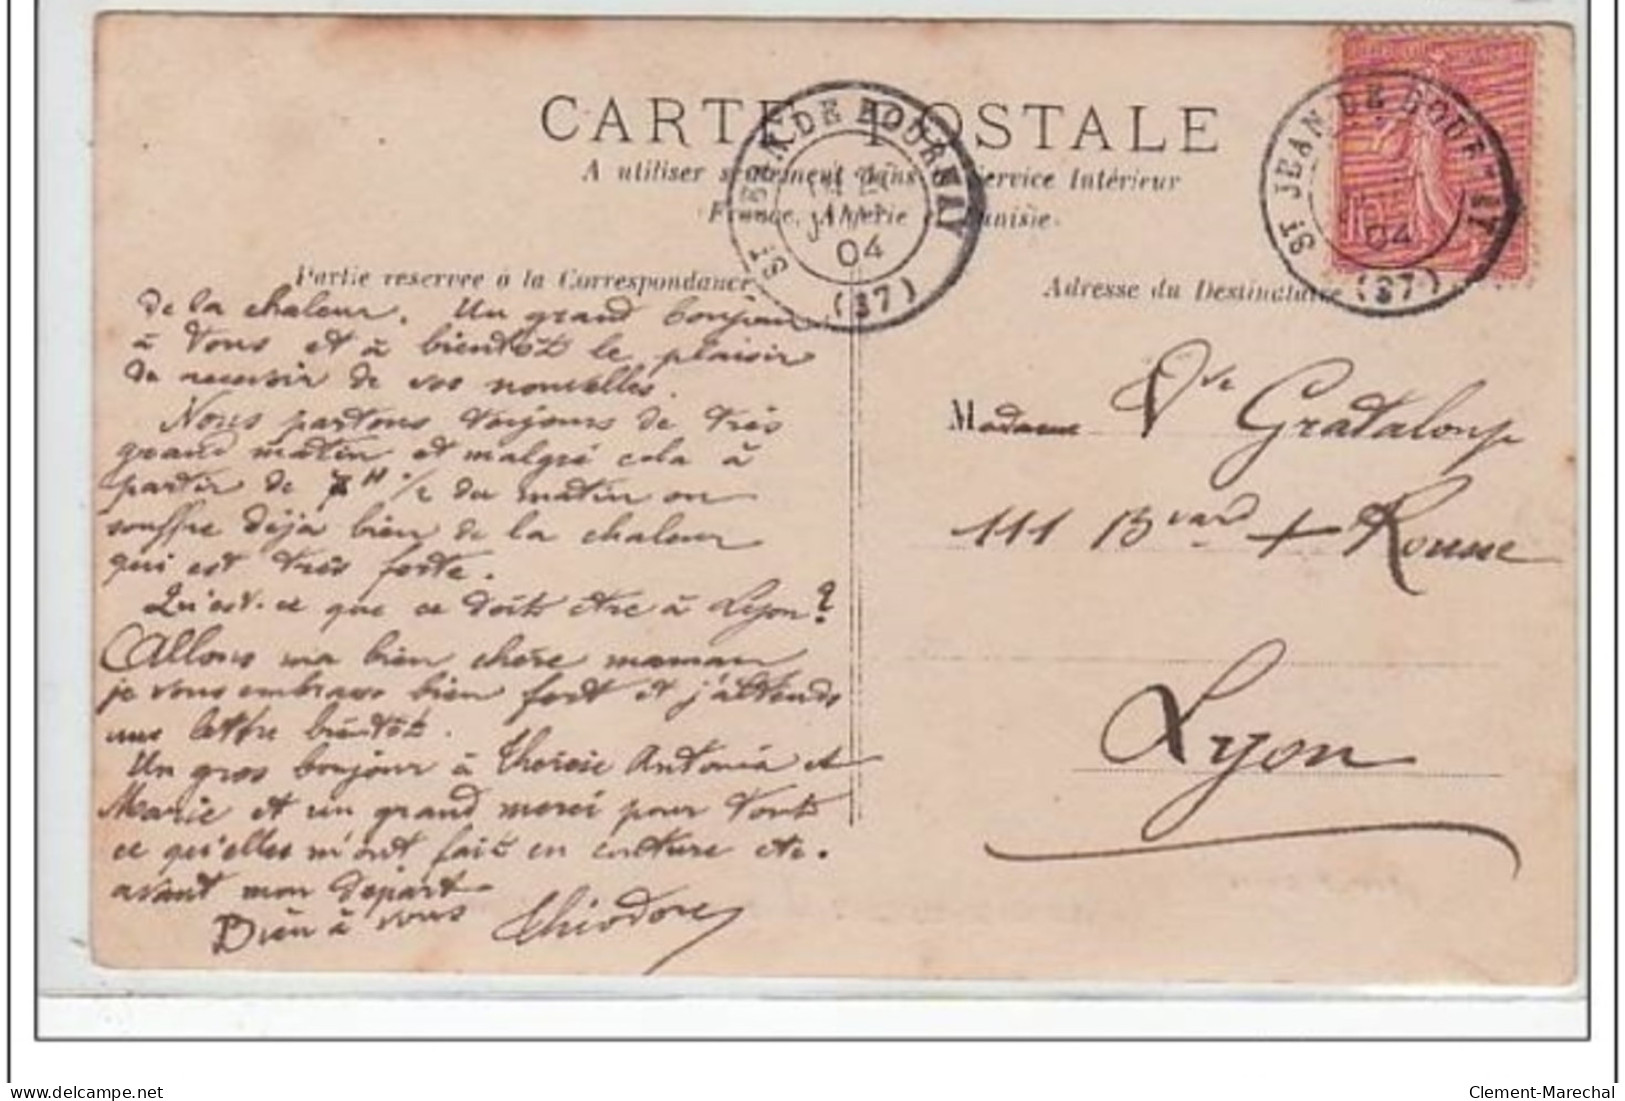 CARTE POSTALE
A utiliser seulement dans le Service Intérieur
France, Algérie et Tunisie.
Partie réservée à la Correspondance
Adresse du Destinataire
ST JEAN DE BOURNAY
04
(37)
ST JEAN DE BOURNAY
04
(37)
de la chaleur. Un grand bonjour
à tous et à bientôt le plaisir
de recevoir de vos nouvelles.
Nous partons toujours de très
grand matin et malgré cela à
partir de 7H 1/2 du matin on
souffre déja bien de la chaleur
qui est très forte.
Qu'est-ce que ce doit être à Lyon?
Allons ma bien chère maman
je vous embrasse bien fort et j'attends
une lettre bientôt.
Un gros bonjour à Thérèse Antonia et
Marie et un grand merci pour tout
ce qu'elles m'ont fait en couture etc.
avant mon départ
Bien à vous Théodore
Madame Vve Grataloup
111 Bvard + Rousse
Lyon
delcampe.net
Clement-Marechal